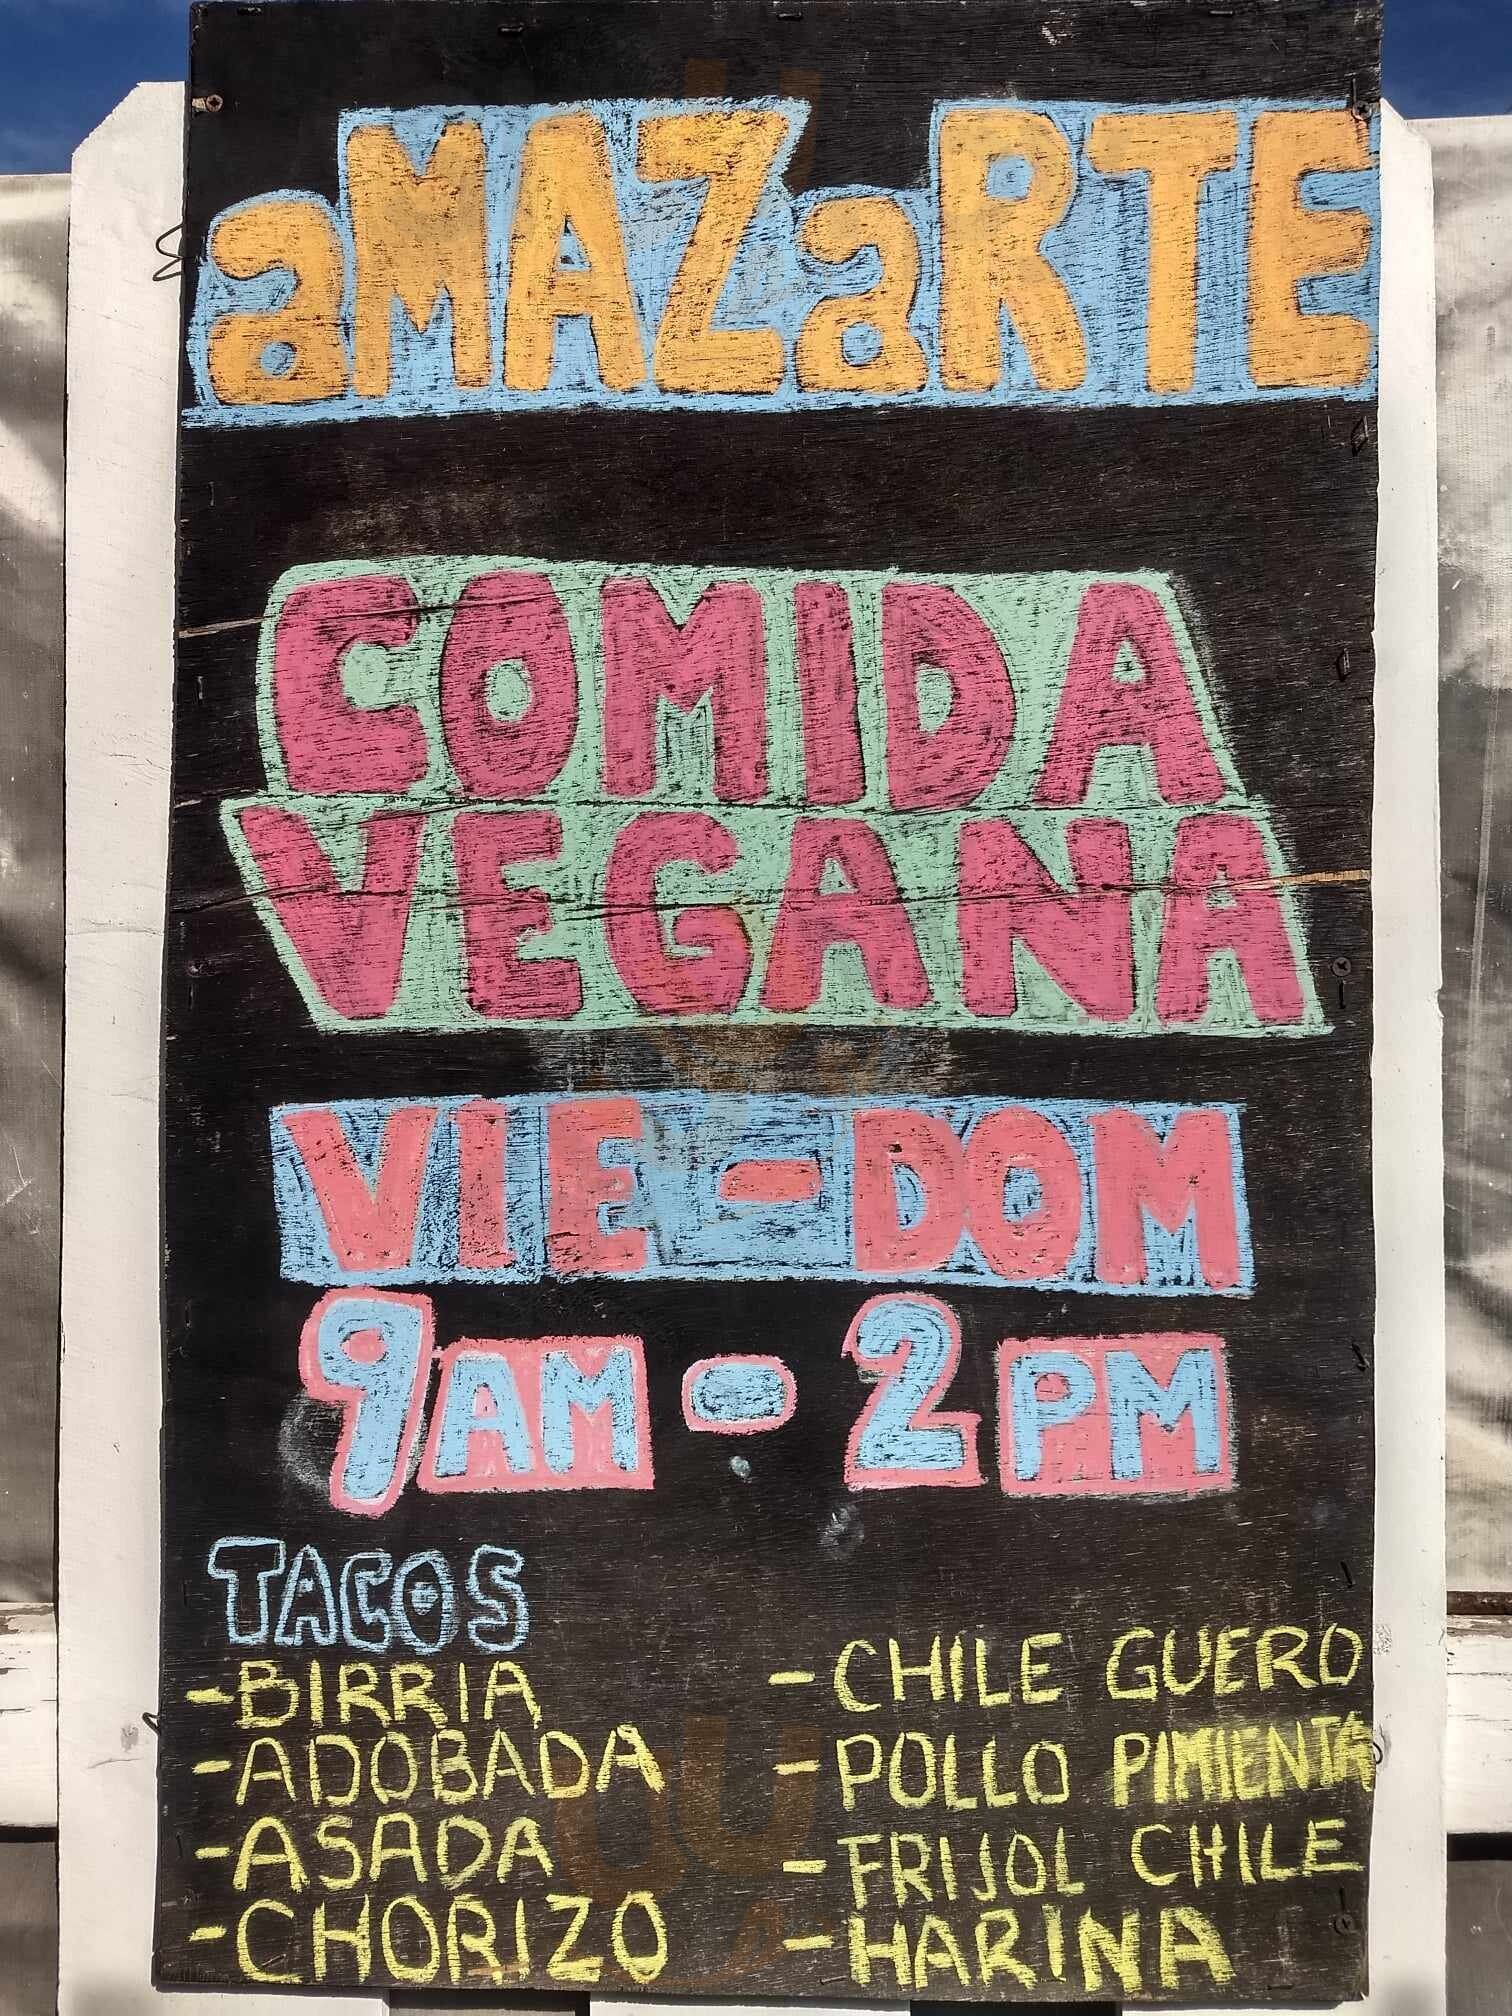 aMAZaRTE
COMIDA
VEGANA
VIE-DOM
9AM-2PM
TACOS
-BIRRIA
-ADOBADA
-ASADA
-CHORIZO
-CHILE GUERO
-POLLO PIMIENTA
-FRIJOL CHILE
-HARINA